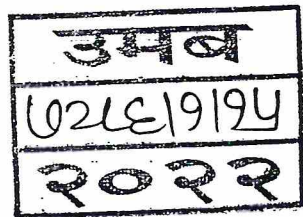 उमब
७२८६|१|१५
२०२२